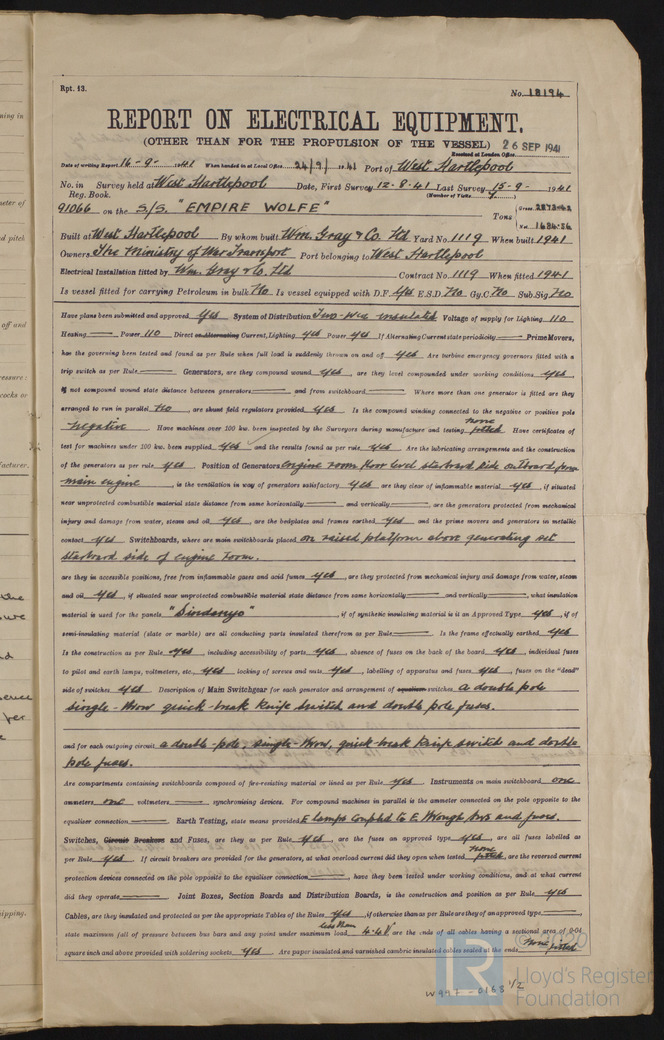 Rpt. 13.
No. 18194
REPORT ON ELECTRICAL EQUIPMENT.
(OTHER THAN FOR THE PROPULSION OF THE VESSEL) 26 SEP 1941
Received at London Office
Date of writing Report 16-9-1941 When handed in at Local Office 24/9/1941 Port of West Hartlepool
No. in Survey held at West Hartlepool Date, First Survey 12.8.41 Last Survey 15-9-1941
Reg. Book. (Number of Visits
91066 on the S/S. "EMPIRE WOLFE" Tons Gross Net 1684.56
Built at West Hartlepool By whom built Wm. Gray & Co. Ltd Yard No. 1119 When built 1941
Owners The Ministry of War Transport Port belonging to West Hartlepool
Electrical Installation fitted by Wm. Gray & Co. Ltd Contract No. 1119 When fitted 1941
Is vessel fitted for carrying Petroleum in bulk No Is vessel equipped with D.F. Yes E.S.D. No Gy.C. No Sub.Sig. No
Have plans been submitted and approved Yes System of Distribution Two-wire insulated Voltage of supply for Lighting 110
Heating — Power 110 Direct or Alternating Current, Lighting Yes Power Yes If Alternating Current state periodicity — Prime Movers,
has the governing been tested and found as per Rule when full load is suddenly thrown on and off Yes Are turbine emergency governors fitted with a
trip switch as per Rule — Generators, are they compound wound Yes, are they level compounded under working conditions Yes,
if not compound wound state distance between generators — and from switchboard — Where more than one generator is fitted are they
arranged to run in parallel No, are shunt field regulators provided Yes Is the compound winding connected to the negative or positive pole
negative Have machines over 100 kw. been inspected by the Surveyors during manufacture and testing none fitted Have certificates of
test for machines under 100 kw. been supplied Yes and the results found as per rule Yes Are the lubricating arrangements and the construction
of the generators as per rule Yes Position of Generators Engine room floor level starboard side outboard from
main engine, is the ventilation in way of generators satisfactory Yes are they clear of inflammable material Yes, if situated
near unprotected combustible material state distance from same horizontally — and vertically —, are the generators protected from mechanical
injury and damage from water, steam and oil Yes, are the bedplates and frames earthed Yes and the prime movers and generators in metallic
contact Yes Switchboards, where are main switchboards placed on raised platform above generating set
starboard side of engine room.
are they in accessible positions, free from inflammable gases and acid fumes Yes, are they protected from mechanical injury and damage from water, steam
and oil Yes, if situated near unprotected combustible material state distance from same horizontally — and vertically —, what insulation
material is used for the panels "Sindanyo", if of synthetic insulating material is it an Approved Type Yes, if of
semi-insulating material (slate or marble) are all conducting parts insulated therefrom as per Rule — Is the frame effectually earthed Yes
Is the construction as per Rule Yes, including accessibility of parts Yes, absence of fuses on the back of the board Yes, individual fuses
to pilot and earth lamps, voltmeters, etc. Yes locking of screws and nuts Yes, labelling of apparatus and fuses Yes, fuses on the "dead"
side of switches Yes Description of Main Switchgear for each generator and arrangement of equaliser switches A double pole
single-throw quick-break knife switch and double pole fuses.
and for each outgoing circuit a double-pole, single-throw, quick-break knife switch and double
pole fuses.
Are compartments containing switchboards composed of fire-resisting material or lined as per Rule Yes Instruments on main switchboard one
ammeters one voltmeters — synchronising devices. For compound machines in parallel is the ammeter connected on the pole opposite to the
equaliser connection — Earth Testing, state means provided E lamps coupled to E through sws and fuses.
Switches, Circuit Breakers and Fuses, are they as per Rule Yes, are the fuses an approved type Yes, are all fuses labelled as
per Rule Yes If circuit breakers are provided for the generators, at what overload current did they open when tested none fitted, are the reversed current
protection devices connected on the pole opposite to the equaliser connection —, have they been tested under working conditions, and at what current
did they operate — Joint Boxes, Section Boards and Distribution Boards, is the construction and position as per Rule Yes
Cables, are they insulated and protected as per the appropriate Tables of the Rules Yes, if otherwise than as per Rule are they of an approved type —,
state maximum fall of pressure between bus bars and any point under maximum load less than 4.4 V, are the ends of all cables having a sectional area of 0.01
square inch and above provided with soldering sockets Yes Are paper insulated and varnished cambric insulated cables sealed at the ends None fitted
W997-0168 1/2
Lloyd's Register
Foundation